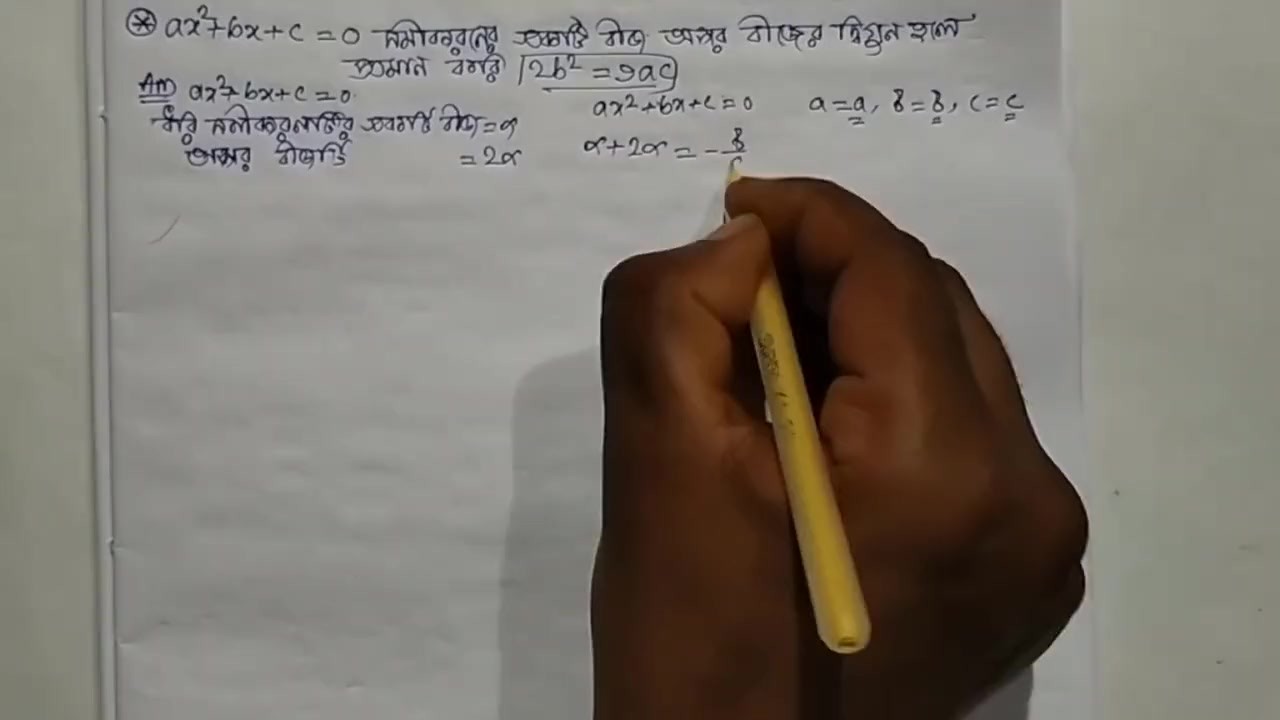 ⊛ ax²+bx+c=0 সমীকরনের একটি বীজ অপর বীজের দ্বিগুন হলে
প্রমান করি 2b²=9ac
Ans ax²+bx+c=0
ধরি সমীকরনটির একটি বীজ=α
অপর বীজটি =2α
ax²+bx+c=0 a=a, b=b, c=c
α+2α=-b